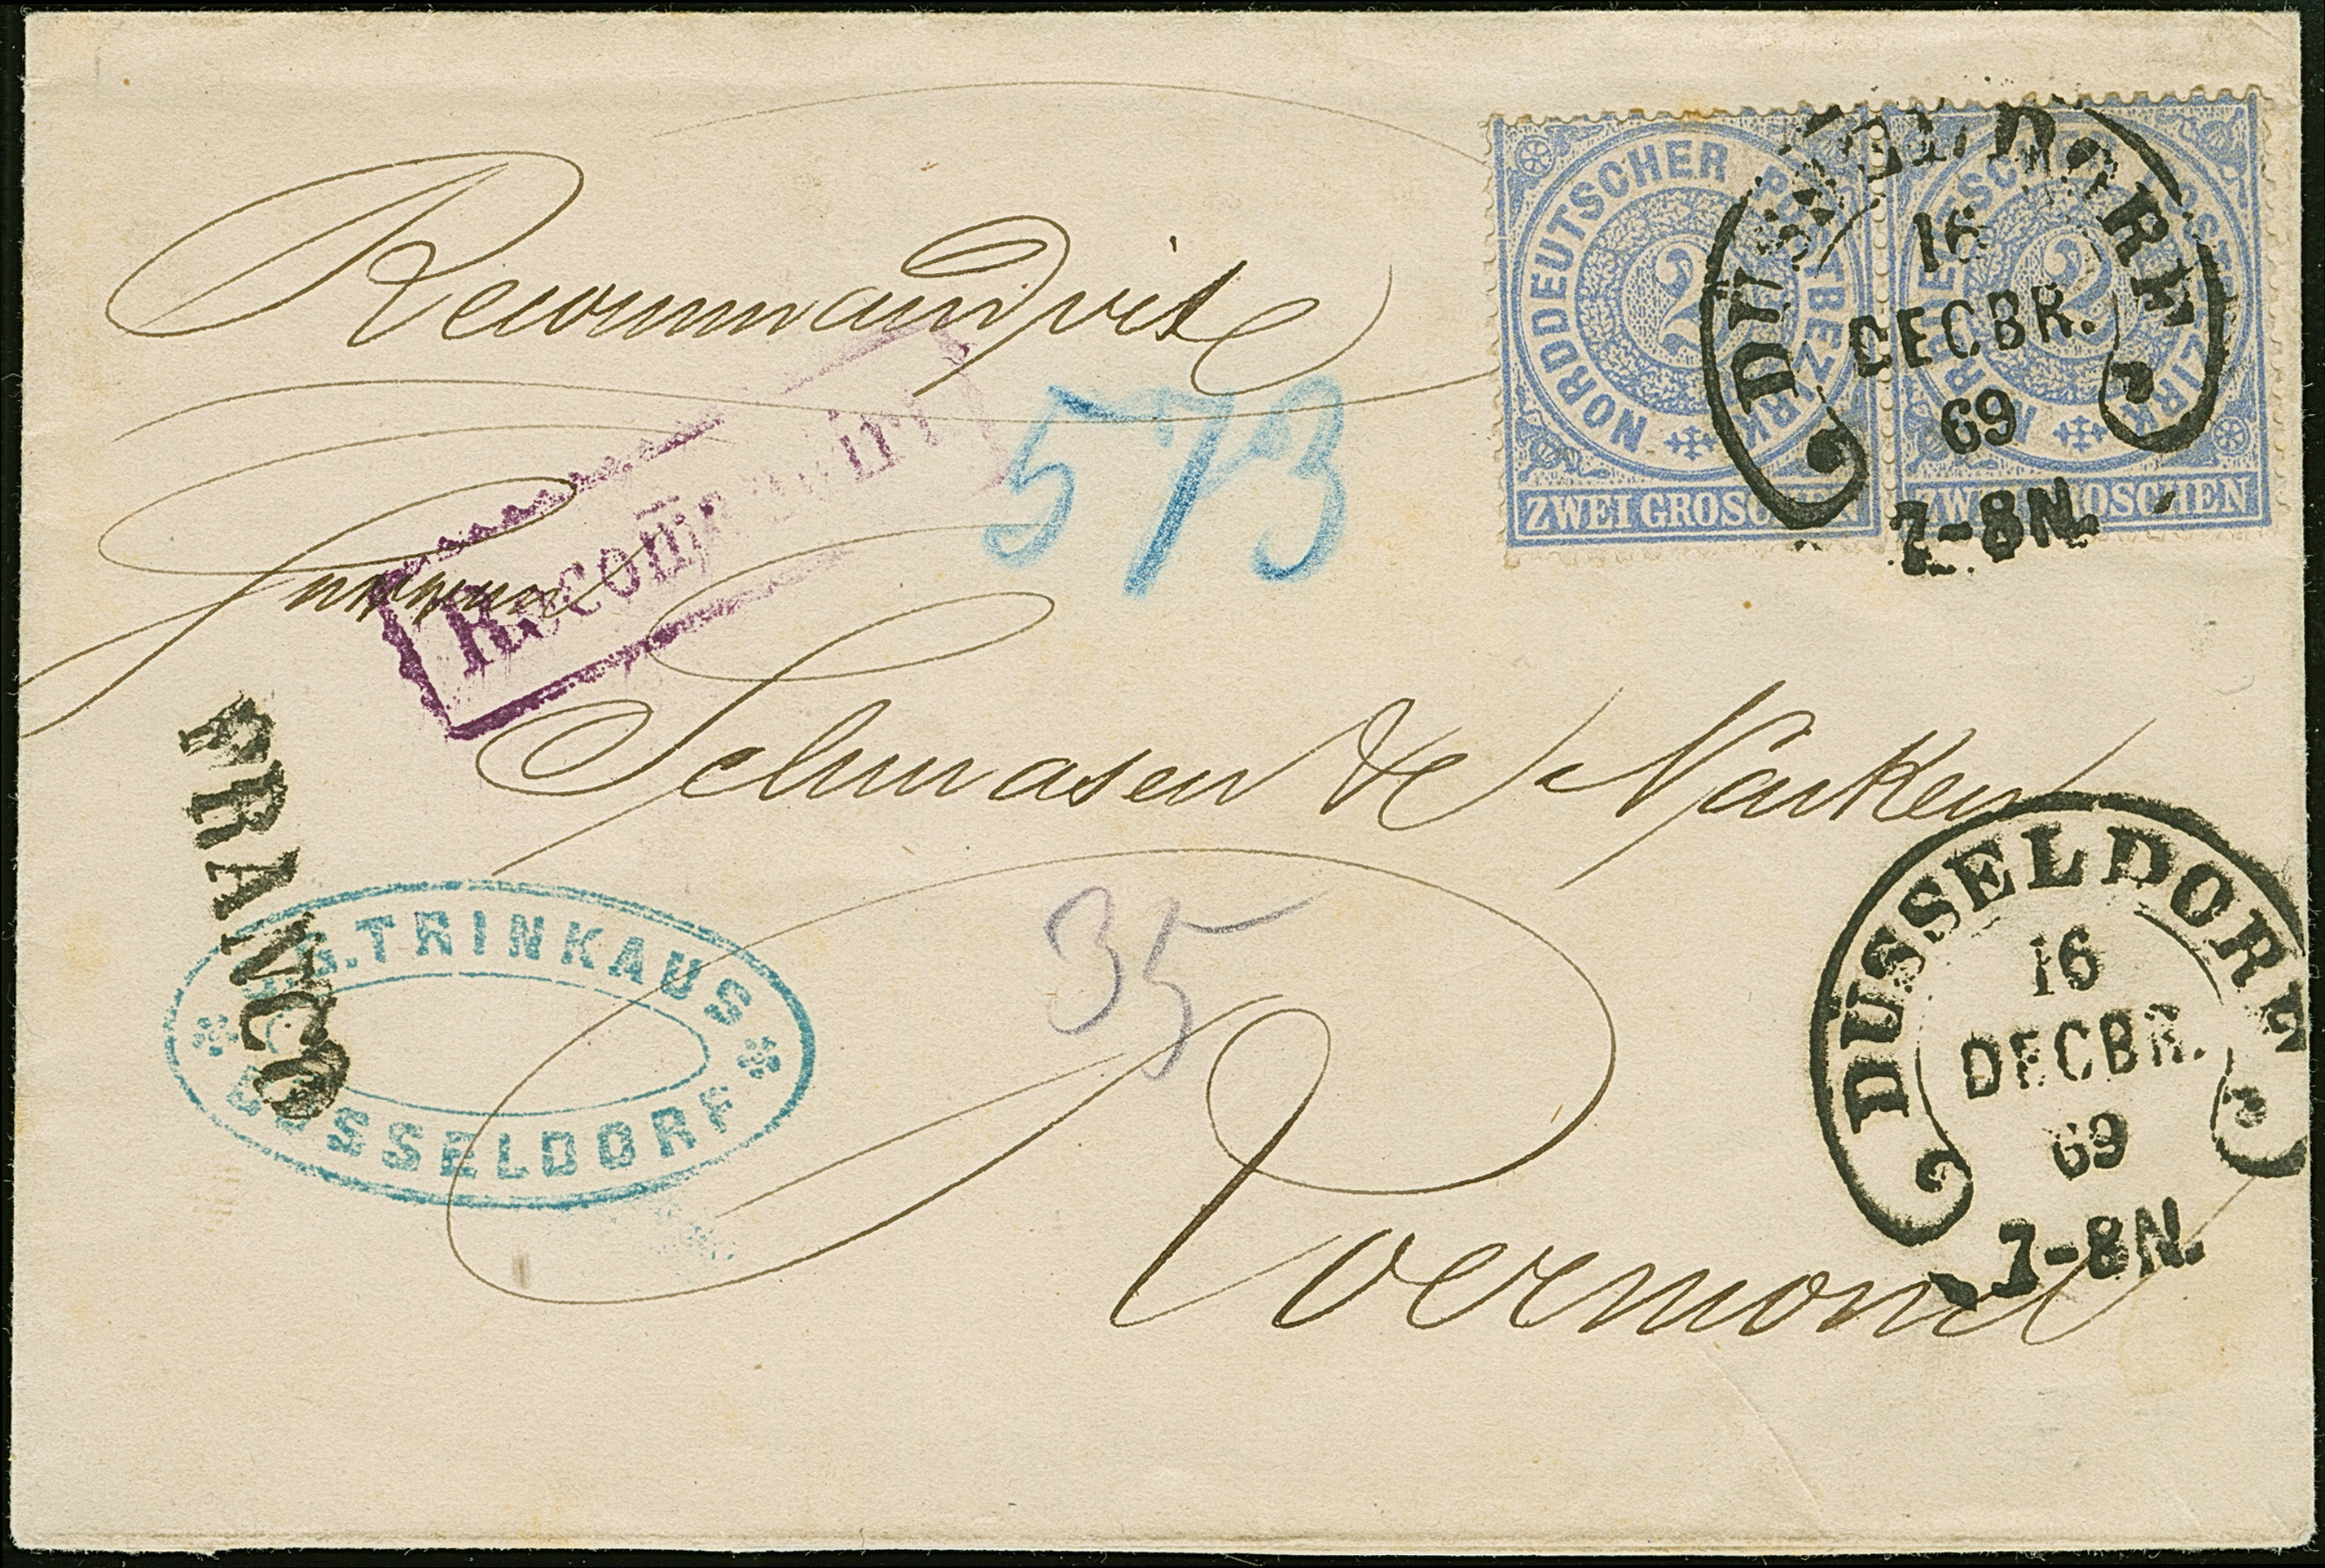 NORDDEUTSCHER POSTBEZIRK
2
ZWEI GROSCHEN
NORDDEUTSCHER POSTBEZIRK
2
ZWEI GROSCHEN
DÜSSELDORF
16
DECBR.
69
7-8N.
Recommandirte
Recom̄andirt
573
FRANCO
Schmasen &
35
C.G.TRINKAUS
DÜSSELDORF
DÜSSELDORF
16
DECBR.
69
7-8N.
Roermond